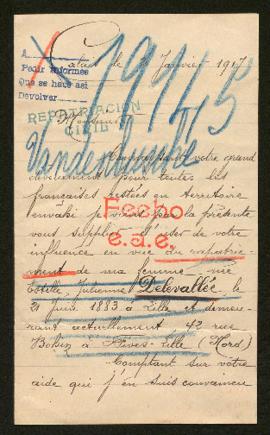 Calais le Janvier 1917
A
Pedir informes
Que se haga así
Devolver
19445
REPATRIACION
CIVIL
Monsieur
Vandenbusche
Connaissant votre grand
dévouement pour toutes les
françaises restées en territoire
envahi je viens par la présente
vous supplier d'user de votre
influence en vue du rapatrie
ment de ma femme née
Estelle Julienne Delevallée le
21 Juin 1883 à Lille et demeu
rant actuellement 42 rue
à Fives-Lille (Nord)
Fecho
e.a.e.
Comptant sur votre
aide que j'en suis convaincu